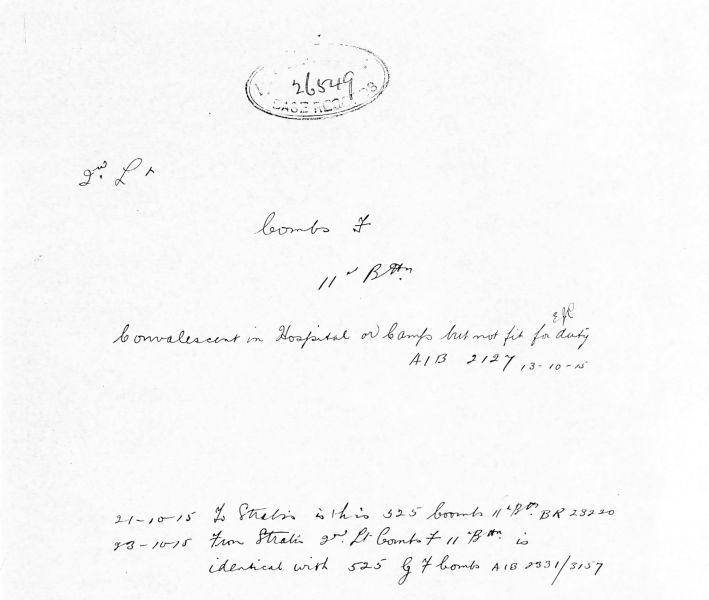 26549
BASE RECORDS
2nd Lt
Combs F
11th Bttn.
Convalescent in Hospital or Camp but not fit for duty
AIB 2127 13-10-15
21-10-15 To Stratis is this 525 Coombs 11th Bttn. BR 23220
23-10-15 From Stratis 2nd. Lt Combs F 11th Bttn. is
identical with 525 G F Combs AIB 2331/3157